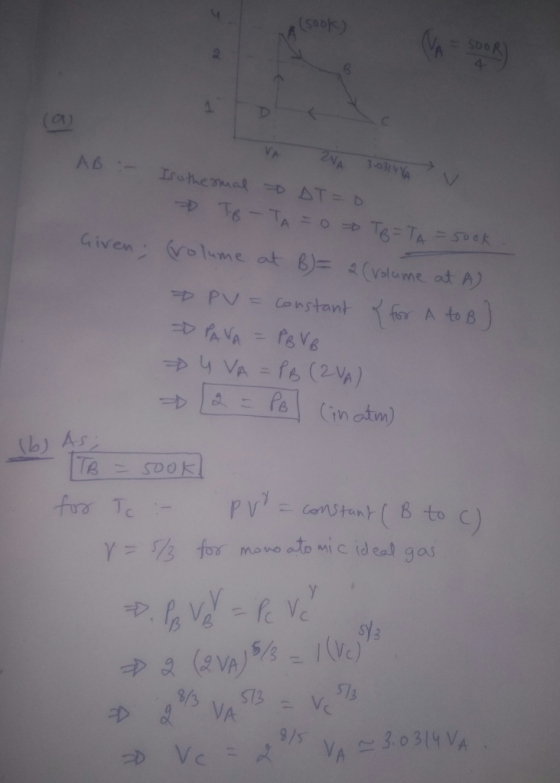 4
A (500K)
(VA = 500R/4)
2
B
1
D
C
VA
2VA
3.0314VA
V
(a)
AB :- Isothermal => ΔT = 0
=> TB - TA = 0 => TB = TA = 500K.
Given; (volume at B) = 2 (volume at A)
=> PV = constant {for A to B}
=> PAVA = PBVB
=> 4 VA = PB (2VA)
=> 2 = PB (in atm)
(b) As;
TB = 500K
for TC :- PV^γ = constant ( B to C)
γ = 5/3 for monoatomic ideal gas.
=> PB VB^γ = PC VC^γ
=> 2 (2VA)^5/3 = 1(VC)^5/3
=> 2^8/3 VA^5/3 = VC^5/3
=> VC = 2^8/5 VA ≃ 3.0314 VA.